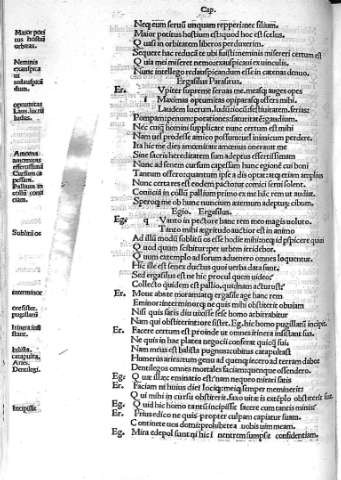 Cap.
Neq; eum seruū unquam repperi nec filium.
Maior potitus hostium est quod hoc est scelus.
Quasi in orbitatem liberos perduxerim.
Sequere hac reducā te ubi fuisti: neminis misereri certum est
Quia mei miseret neminem: exauspicaui ex uinculis.
Nunc intellego redauspicandum esse in catenas denuo.
Ergasilus Parasitus.
Er. Iupiter supreme seruas me. measq; auges opes
Maximas opimitates opiparasq; offers mihi.
Laudem lucrum. ludū. iocū. festiuitatem. ferias:
Pompam: penum: potationes: saturitatē: gaudium.
Nec cuiq̃ homini supplicare nunc certum est mihi
Nam uel prodesse amico possum: uel inimicum perdere.
Ita hic me dies amœnitate amœnus onerauit me
Sine sacris hereditatem sum adeptus
Nunc ad senem cursum capessam hunc egionē cui boni
Tantum offero: quantum ipse a dis optat: atq; etiam amplius
Nunc certa res est eodem pacto ut comici serui solent.
Coniciā in collū pallium primo ex me hāc rem ut audiat.
Speroq; me ob hunc nuncium æternum adepturū cibum.
Egio. Ergasilus.
Eg. Quanto in pectore hanc rem meo magis uoluto.
Tanto mihi ægritudo auctior est in animo
Ad illū modū sublitū os esse hodie mihi: neq; id pspicere quiui
Quod quum scibitur per urbem irridebor.
Quum extemplo ad forum aduenero omnes loquentur.
Hic ille est senex ductus quoi uerba data sunt.
Sed ergasilus est ne hic procul quem uideo:
Collecto quidem est pallio. quidnam acturust
Er. Moue abs te moram: atq; ergasile age hanc rem
Eminor: interminorq; ne quis mihi obstiterit obuiam
Nisi quis satis diu uixisse sese homo arbitrabitur
Nam qui obstiterit: ore sistet. Eg. hic homo pugilatū incipit
Er. Facere certum est: proinde ut omnes itinera insistant sua.
Ne quis in hac platea negocii conferat quicq̃ sui:
Nam meus est balista pugnus: cubitus catapulta ē
Humerus aries: tum genu ad quemq; iecero ad terram dabo:
Dentilegos omnes mortales faciam: quemque offendero.
Eg. Quæ illæc eminatio est: nam nequeo mirari satis
Er. Faciam ut huius diei locique: meiq; semper meminerit
Qui mihi in cursu obstiterit. faxo uitæ is extēplo obstiterit suæ.
Eg. Quid hic homo tantū incipisse facere cum tantis minis?
Er. Prius edico ne quis propter culpam capiatur suam.
Continete uos domi: prohibete a uobis uim meam.
Eg. Mira edepol sunt: nisi hic in uentrem sumpsit confidentiam.
Maior potitus hostiū
orbitas.
Neminis
exauspicare
redauspicandum.
opimitates
Laus. lucrū
ludus.
Amœna
amœnitas
Cursum capessere.
Pallium in
collū coniciam.
Sublitū os
interminor
ore sistet.
pugilatū
Itinera insistant
balista.
catapulta.
Aries.
Dentilegi.
Incipisse